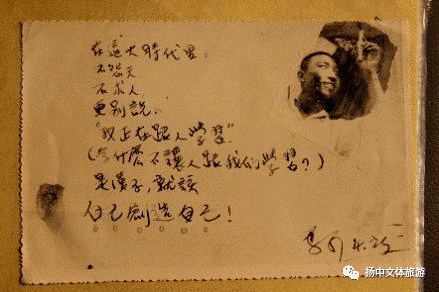 在這大時代里，
不怨天
不求人，
更别説，
"我正在跟人學習"
(為什麽不讓人跟我們學習？)
是漢子，就該
自己創造自己！
扬中文体旅游